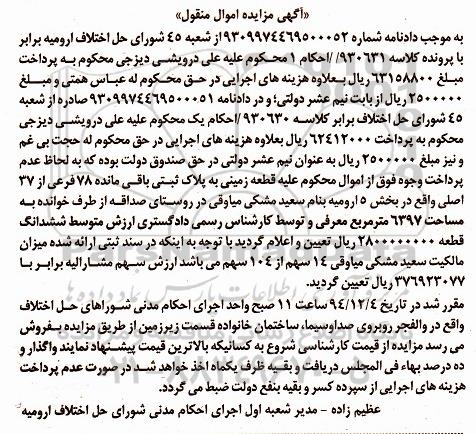 «آگهی مزایده اموال منقول»
به موجب دادنامه شماره ۹۳۰۹۹۷۴۴۶۹۵۰۰۰۵۲ از شعبه ۴۵ شورای حل اختلاف ارومیه برابر
با پرونده کلاسه ۹۳۰۶۳۱/ /احکام ۱ محکوم علیه علی درویشی دیزجی محکوم به پرداخت
مبلغ ۶۳۱۵۸۸۰۰ ریال بعلاوه هزینه های اجرایی در حق محکوم له عباس همتی و مبلغ
۲۵۰۰۰۰۰ ریال از بابت نیم عشر دولتی؛ و در دادنامه ۹۳۰۹۹۷۴۴۶۹۵۰۰۰۵۱ صادره از شعبه
۴۵ شورای حل اختلاف برابر کلاسه ۹۳۰۶۳۰ /احکام یک محکوم علیه علی درویشی دیزجی
محکوم به پرداخت ۶۲۴۱۲۰۰۰ ریال بعلاوه هزینه های اجرایی در حق محکوم له حجت بی غم
و نیز مبلغ ۲۵۰۰۰۰۰ ریال به عنوان نیم عشر دولتی در حق صندوق دولت بوده که به لحاظ عدم
پرداخت وجوه فوق از اموال محکوم علیه قطعه زمینی به پلاک ثبتی باقی مانده ۷۸ فرعی از ۳۷
اصلی واقع در بخش ۵ ارومیه بنام سعید مشکی میاوقی در روستای صداقه از طرف خوانده به
مساحت ۶۳۹۷ مترمربع معرفی و توسط کارشناس رسمی دادگستری ارزش متوسط ششدانگ
قطعه ۲۸۰۰۰۰۰۰۰۰ ریال تعیین و اعلام گردید با توجه به اینکه در سند ثبتی ارائه شده میزان
مالکیت سعید مشکی میاوقی ۱۴ سهم از ۱۰۴ سهم می باشد ارزش سهم مشارالیه برابر با
۳۷۶۹۲۳۰۷۷ ریال تعیین گردید.
مقرر شد در تاریخ ۹۴/۱۲/۴ ساعت ۱۱ صبح واحد اجرای احکام مدنی شوراهای حل اختلاف
واقع در والفجر روبروی صداوسیما، ساختمان خانواده قسمت زیرزمین از طریق مزایده بفروش
می رسد مزایده از قیمت کارشناسی شروع به کسانیکه بالاترین قیمت پیشنهاد نمایند واگذار و
ده درصد بهاء فی المجلس دریافت و بقیه ظرف یکماه اخذ خواهد شد در صورت عدم پرداخت
هزینه های اجرایی از سپرده کسر و بقیه بنفع دولت ضبط می گردد.
عظیم زاده - مدیر شعبه اول اجرای احکام مدنی شورای حل اختلاف ارومیه